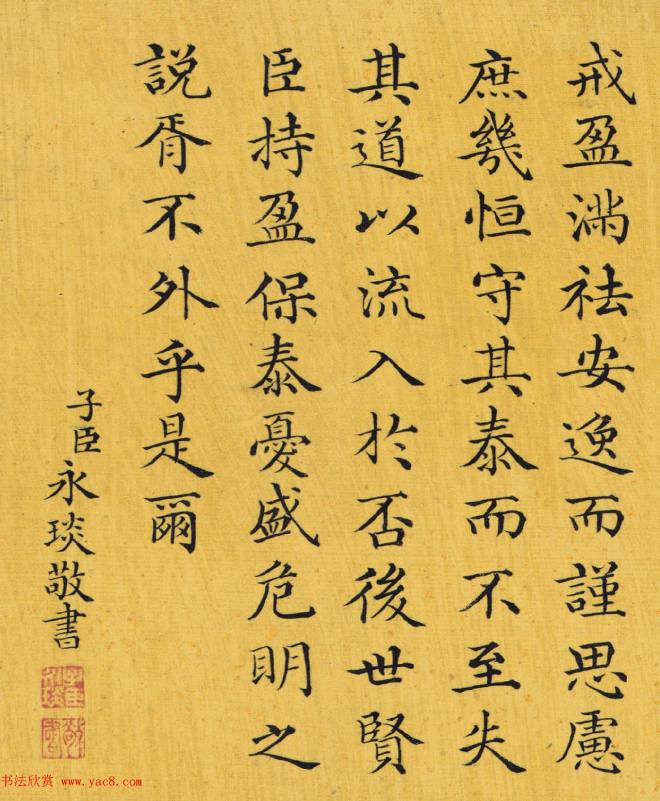 戒盈滿祛安逸而謹思慮
庶幾恒守其泰而不至失
其道以流入於否後世賢
臣持盈保泰憂盛危明之
說胥不外乎是爾
子臣永琰敬書
子臣永琰
敬書
书法欣赏 www.yac8.com